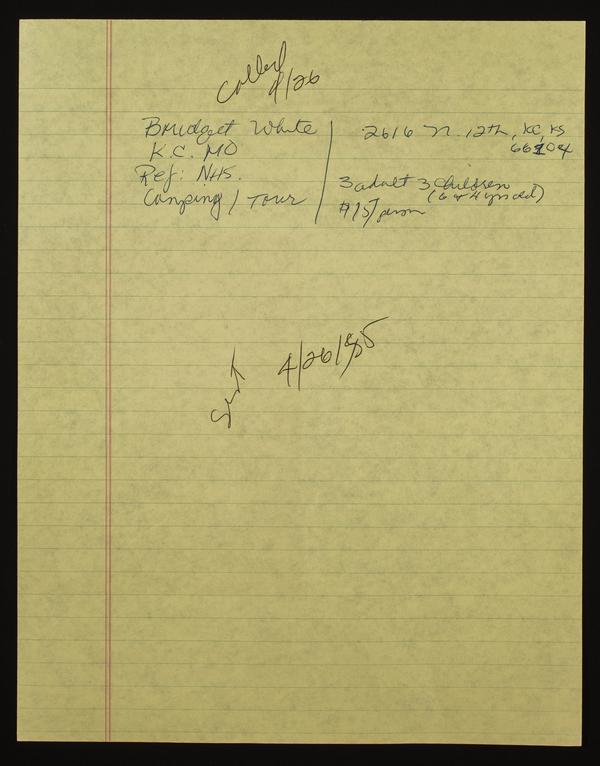 Called
4/26
Bridget White
K.C. MO
Ref: NHS.
Camping / Tour
2616 N. 12th, KC, KS
66104
3 adult 3 Children
(6 & 4 yrs old)
$15/person
Sent 4/26/85